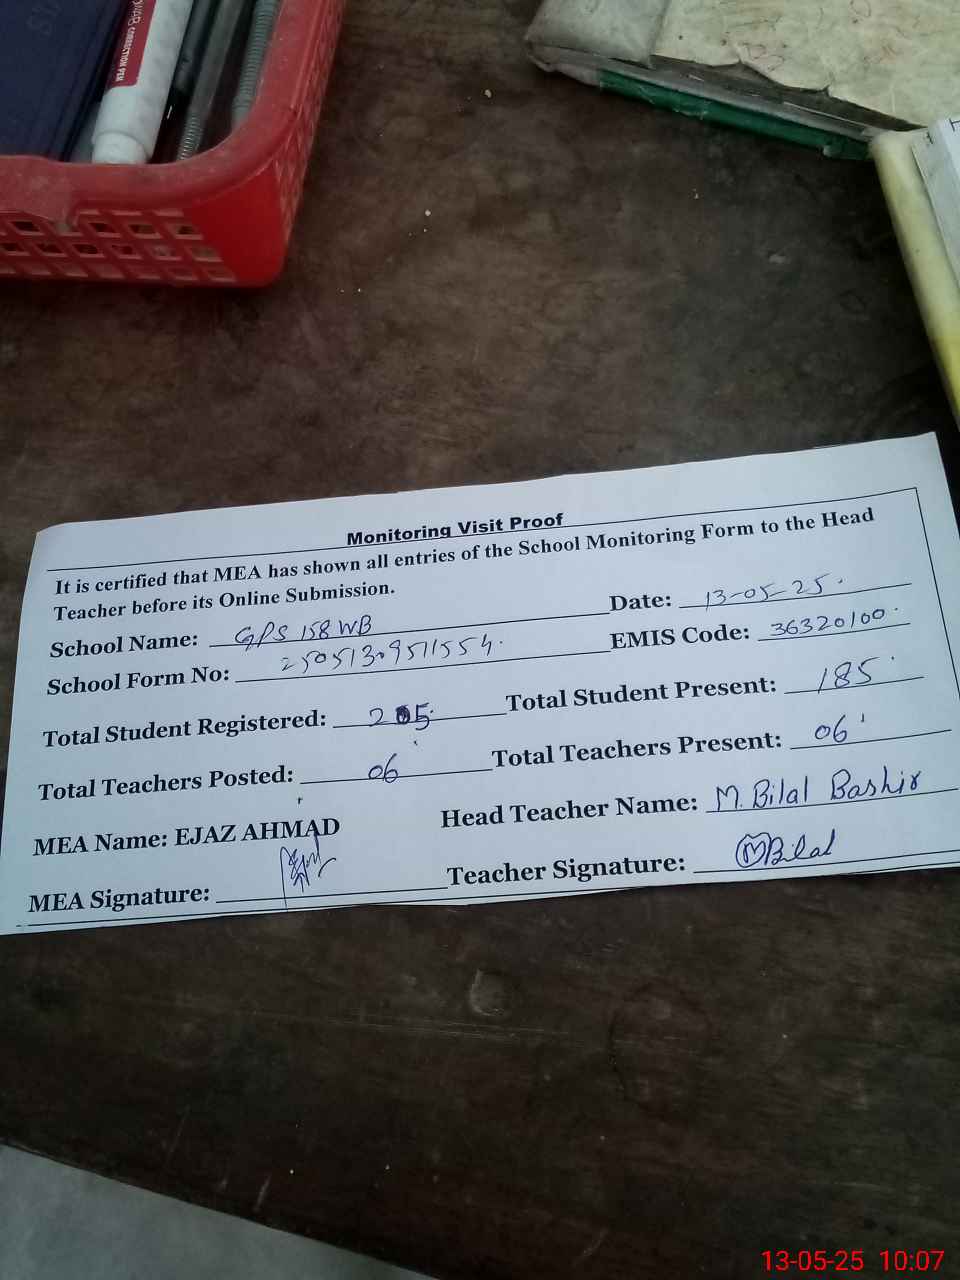 CORRECTION PEN
Monitoring Visit Proof
It is certified that MEA has shown all entries of the School Monitoring Form to the Head
Teacher before its Online Submission.
School Name: GPS 158 WB Date: 13-05-25.
School Form No: 2505130951554. EMIS Code: 36320100.
Total Student Registered: 205. Total Student Present: 185.
Total Teachers Posted: 06 Total Teachers Present: 06
MEA Name: EJAZ AHMAD Head Teacher Name: M. Bilal Bashir
MEA Signature: Teacher Signature: M Bilal
13-05-25 10:07